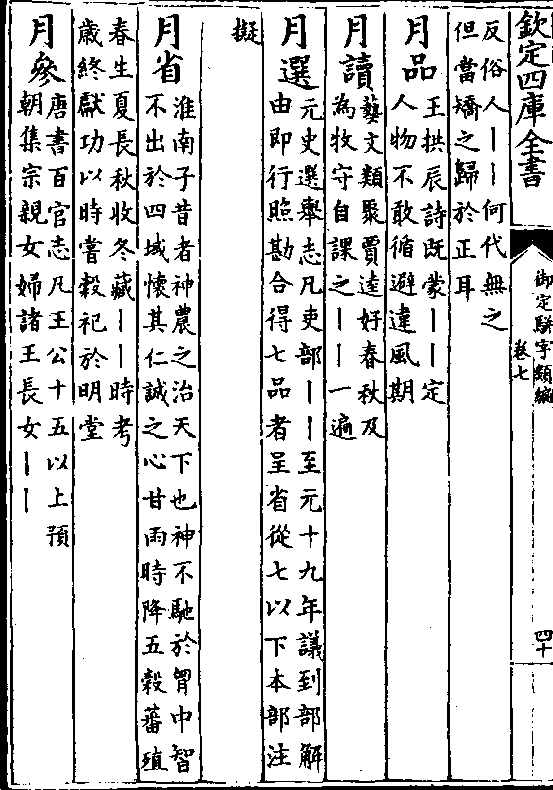 欽定四庫全書
御定駢字類編
卷七
四十
反俗人丨丨何代無之
但當矯之歸於正耳
月品
王拱辰詩既蒙丨丨定
人物不敢循避違風期
月讀
藝文類聚賈逵好春秋及
為牧守自課之丨丨一遍
月選
元史選舉志凡吏部丨丨至元十九年議到部解
由即行照勘合得七品者呈省從七以下本部注
擬
月省
淮南子昔者神農之治天下也神不馳於胷中智
不出於四域懷其仁誠之心甘雨時降五穀蕃殖
春生夏長秋收冬藏丨丨時考
歲終獻功以時嘗穀祀於明堂
月參
唐書百官志凡王公十五以上預
朝集宗親女婦諸王長女丨丨